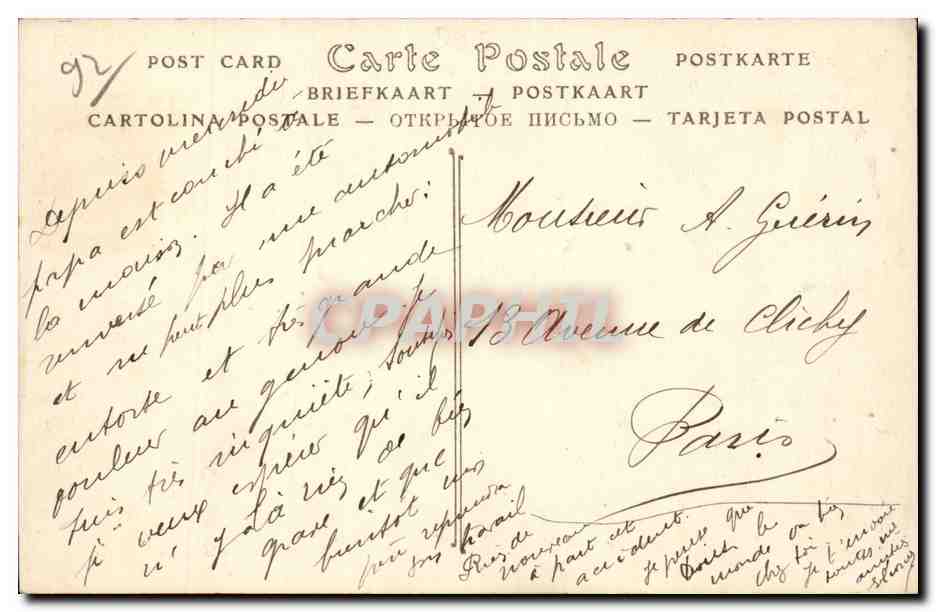 92
POST CARD Carte Postale POSTKARTE
BRIEFKAART — POSTKAART
CARTOLINA POSTALE — ОТКРЫТОЕ ПИСЬМО — TARJETA POSTAL
Depuis mercredi
papa est couché à
la maison. Il a été
renversé par une automobile
et ne peut plus marcher:
entorse et très grande
douleur au genou. Je
suis très inquiète,
je veux espérer qu'il
n'y a là rien de bien
grave et que
bientôt mon
père reprendra
son travail
Rien de
nouveau
à part cet
accident.
Je pense que
tout le
monde va bien
chez toi
Je t'envoie
toutes mes
amitiés
Monsieur A. Guérin
13 Avenue de Clichy
Paris
CPAPHIL